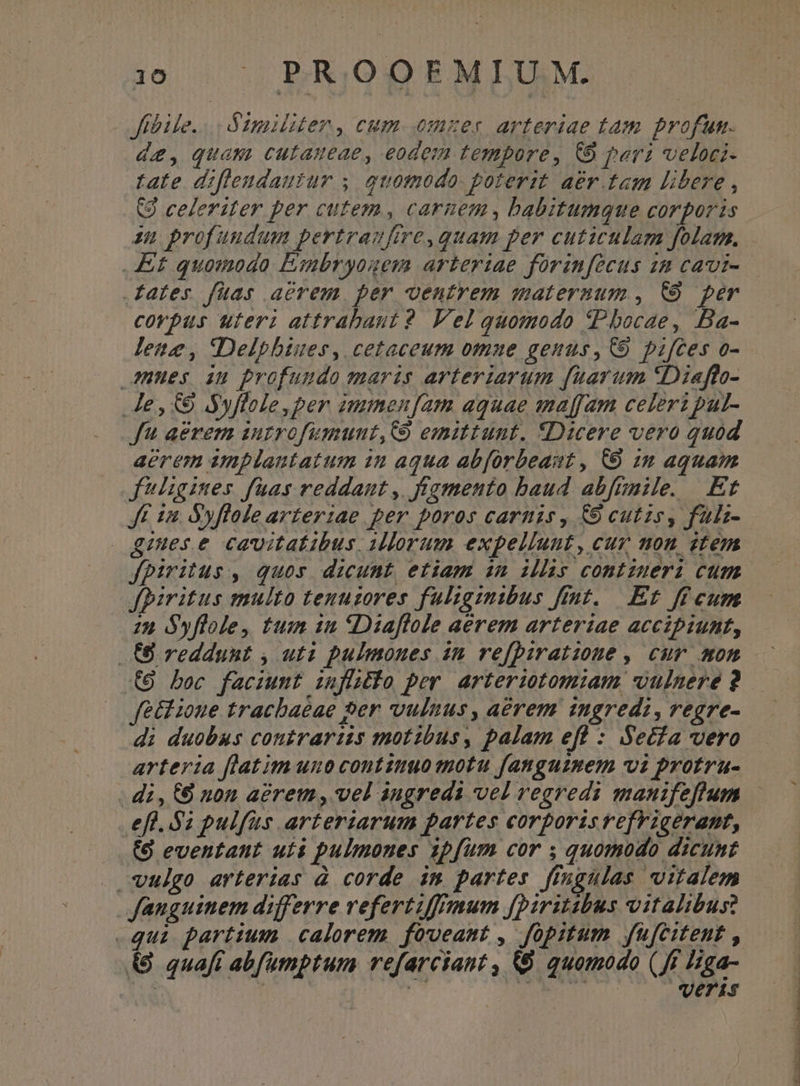 10 PROOEMIUM.
ſibile. Similiter, cum omnes arteriae tam profun-
dæ, quam cutaneae, eodem tempore, & pari veloci-
tate diſtendantur ; quomodo poterit aër tam libere,
& celeriter per cutem, carnem, habitumque corporis
in profundum pertranſire, quam per cuticulam ſolam.
Et quomodo Embryonem arteriae forinſecus in cavi-
tates ſuas aërem per ventrem maternum, & per
corpus uteri attrahant? Vel quomodo Phocae, Ba-
lenæ, Delphines, cetaceum omne genus, & piſces o-
mnes in profundo maris arteriarum ſuarum Diaſto-
le, & Syſtole, per immenſam aquae maſſam celeri pul-
ſu aërem introſumunt, & emittunt. Dicere vero quod
aërem implantatum in aqua abſorbeant, & in aquam
fuligines ſuas reddant, figmento haud abſimile. Et
ſi in Syſtole arteriae per poros carnis, & cutis, fuli-
gines e cavitatibus illorum expellunt, cur non item
ſpiritus, quos dicunt etiam in illis contineri cum
ſpiritus multo tenuiores fuliginibus ſint. Et ſi cum
in Syſtole, tum in Diaſtole aërem arteriae accipiunt,
& reddunt, uti pulmones in reſpiratione, cur non
& hoc faciunt inflicto per arteriotomiam vulnere?
ſectione trachaëae per vulnus, aërem ingredi, regre-
di duobus contrariis motibus, palam eſt : Secta vero
arteria ſtatim uno continuo motu ſanguinem vi protru-
di, & non aërem, vel ingredi vel regredi manifeſtum
eſt. Si pulſus arteriarum partes corporis refrigerant,
& eventant uti pulmones ipſum cor ; quomodo dicunt
vulgo arterias à corde in partes ſingulas vitalem
ſanguinem differre refertiſſimum ſpiritibus vitalibus?
qui partium calorem foveant, ſopitum ſuſcitent,
& quaſi abſumptum reſarciant, & quomodo (ſi liga-
veris